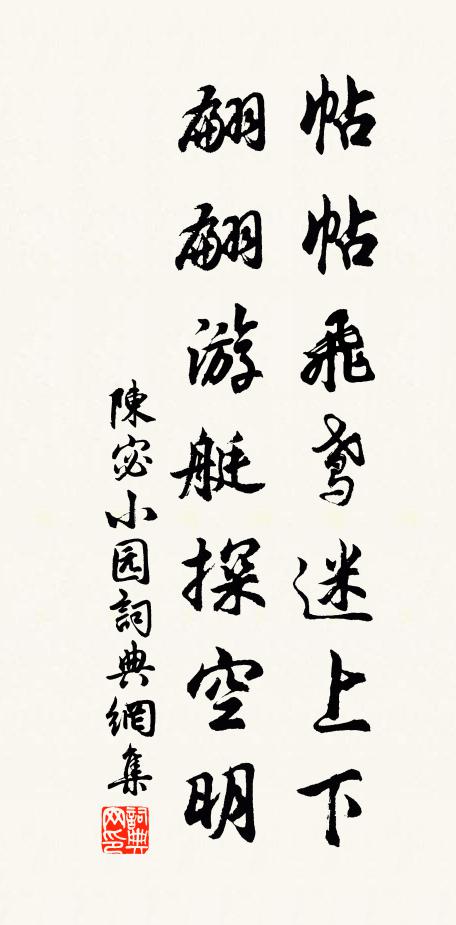 帖帖飛鳶迷上下
翩翩游艇探空明
陳宓小园詞典網集
詞典网印